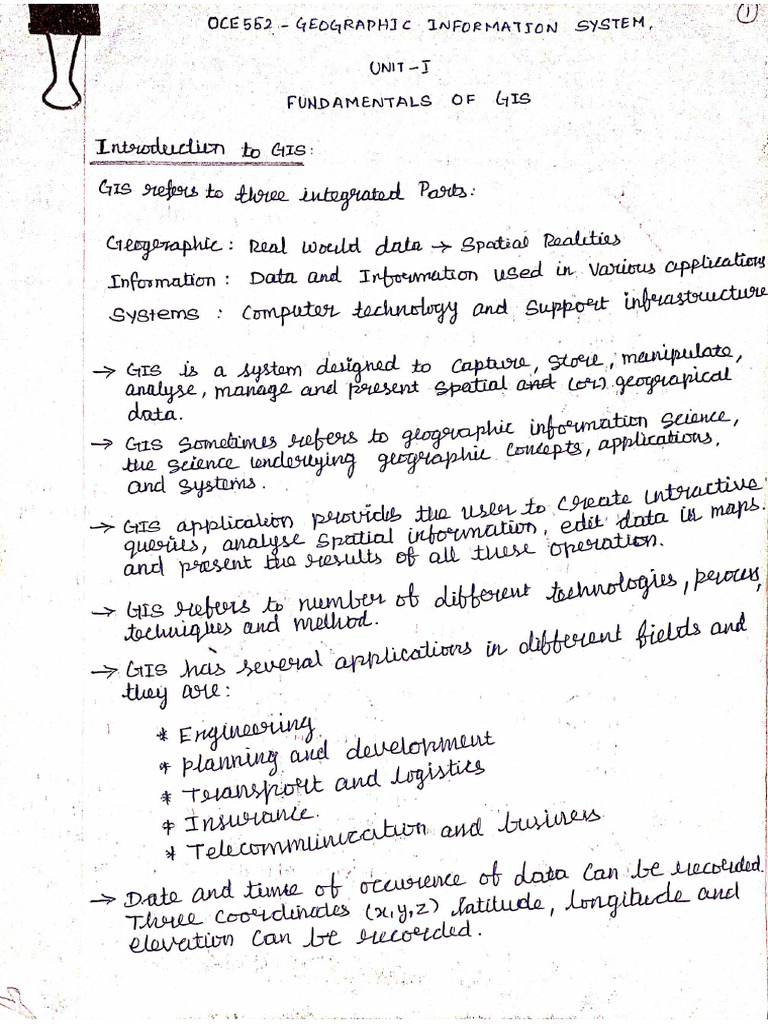 ①
OCE552 - GEOGRAPHIC INFORMATION SYSTEM.
UNIT-I
FUNDAMENTALS OF GIS
Introduction to GIS:
GIS refers to three integrated Parts:
Geographic: Real World data → Spatial Realities
Information: Data and Information used in Various applications
Systems : Computer technology and Support infrastructure
→ GIS is a system designed to Capture, Store, manipulate,
analyse, manage and present spatial and (or) geograpical
data.
→ GIS Sometimes refers to geographic information Science,
the Science underlying geographic Concepts, applications,
and systems.
→ GIS application provides the user to Create intractive
queries, analyse Spatial information, edit data in maps.
and present the results of all these operation.
→ GIS refers to number of different technologies, process,
techniques and method.
→ GIS has several applications in different fields and
they are:
* Engineering
* planning and development
* Transport and logistics
* Insurance.
* Telecommunication and business
→ Date and time of occurence of data Can be recorded.
Three Coordinates (x,y,z) latitude, longitude and
elevation Can be recorded.